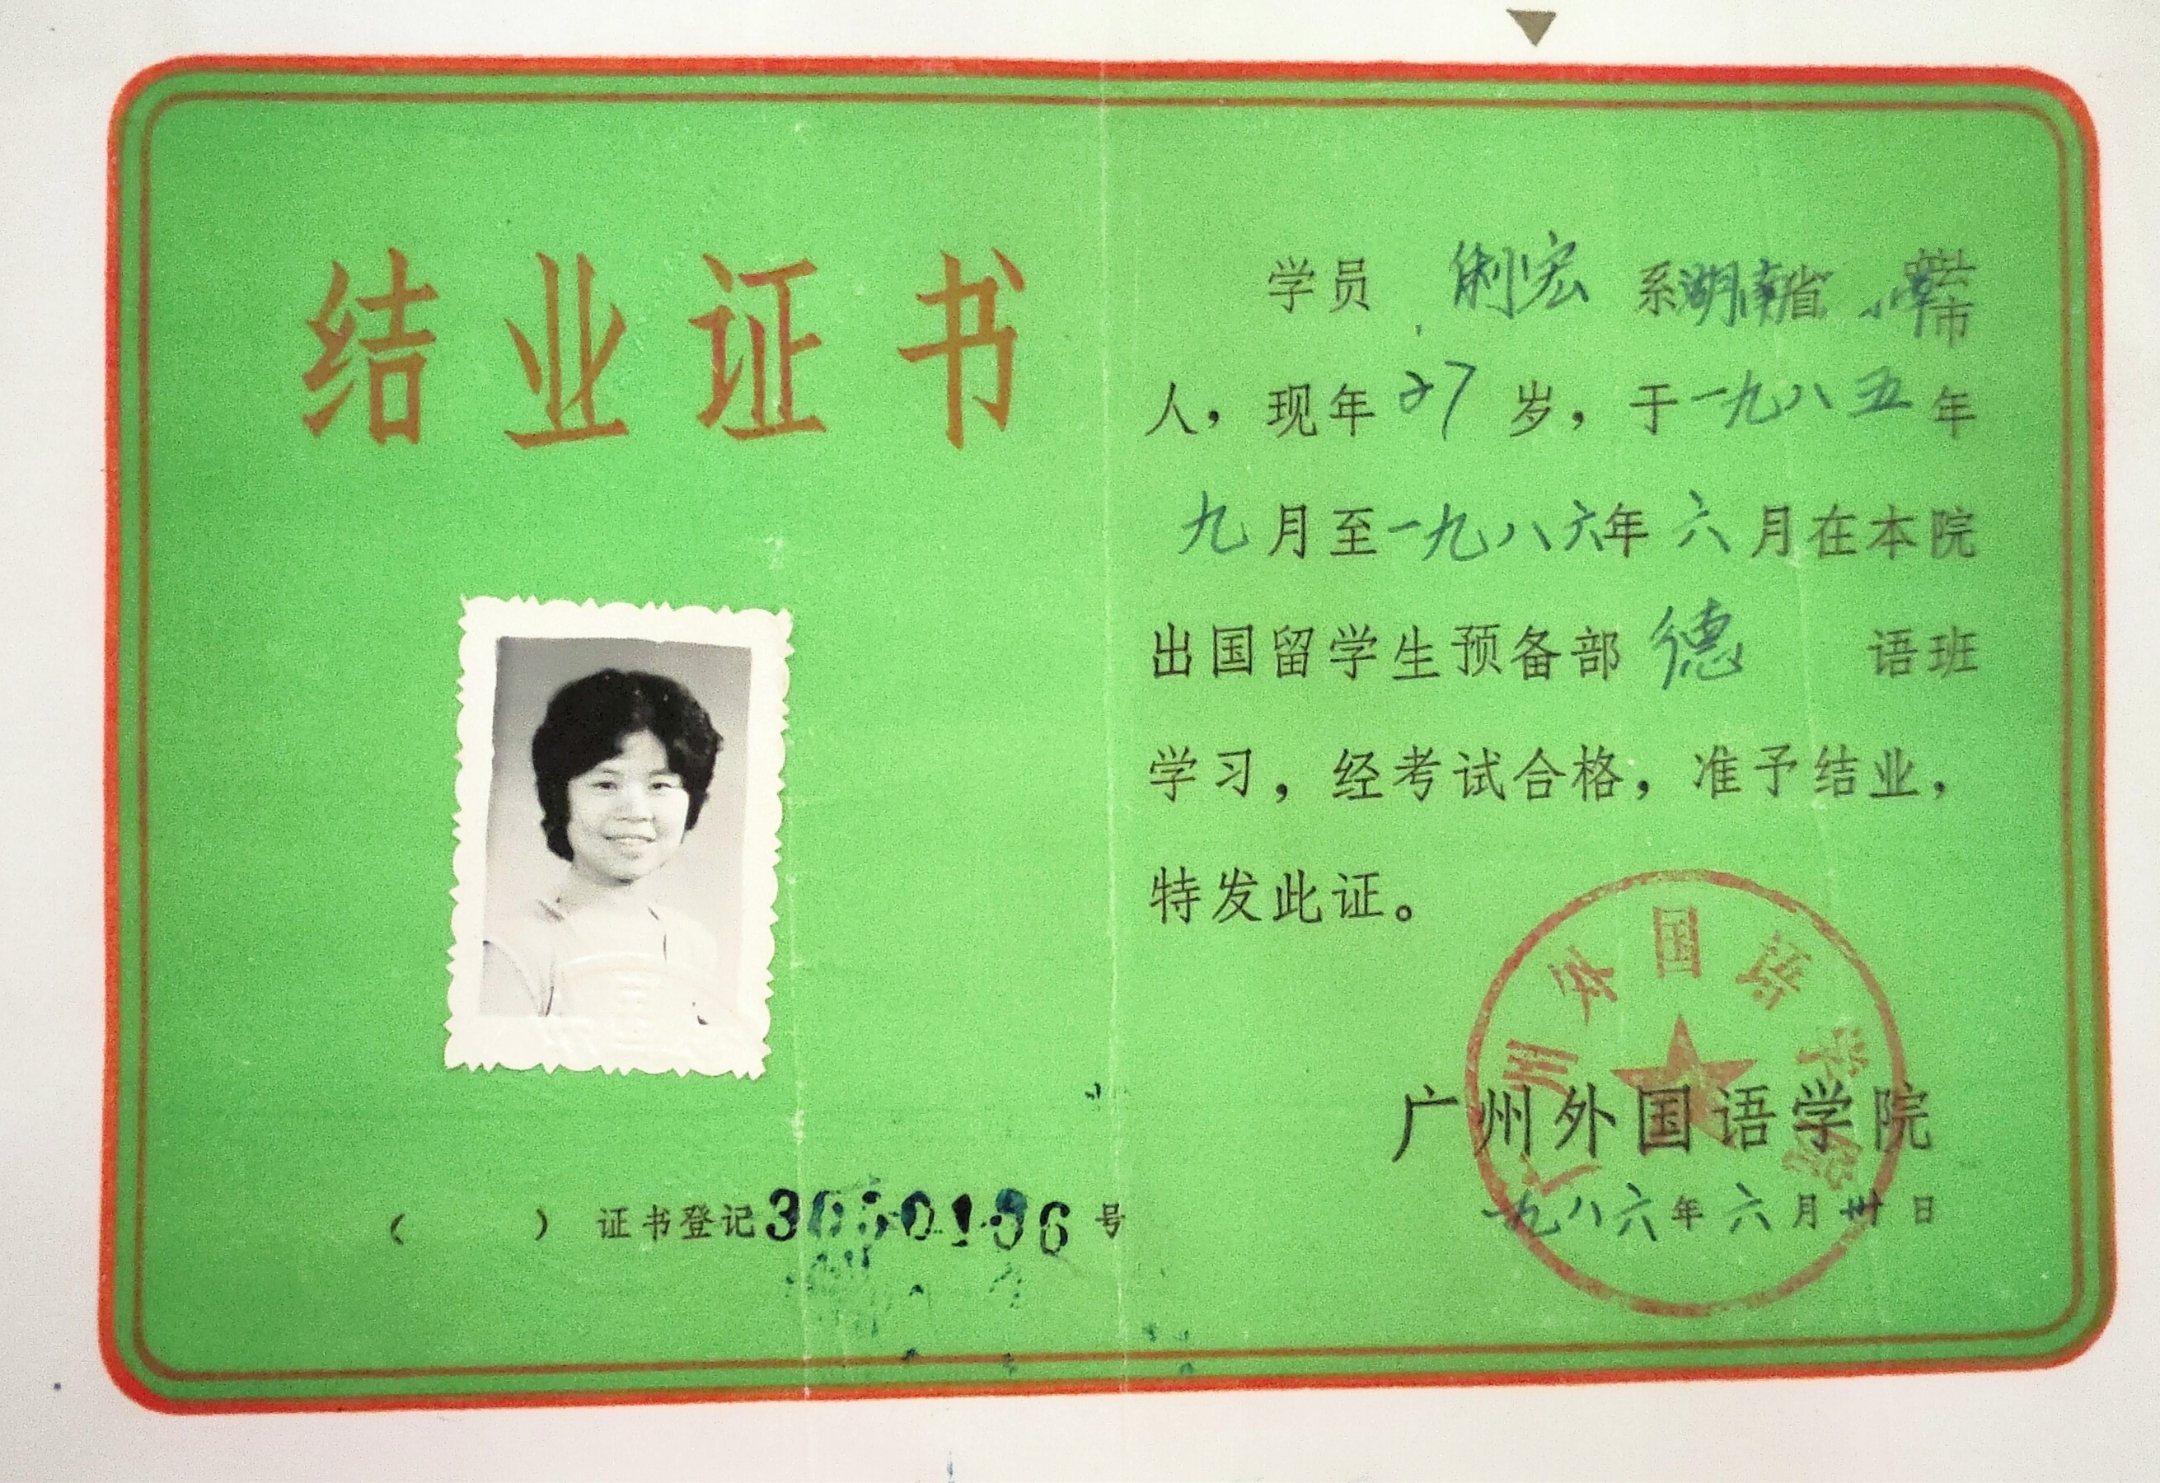 结业证书
学员 俐宏 系湖南省
县
市
人，现年27岁，于一九八五年
九月至一九八六年六月在本院
出国留学生预备部德 语班
学习，经考试合格，准予结业，
特发此证。
广州外国语学院
广州外国语学院
一九八六年六月卅日
（ ）证书登记 号